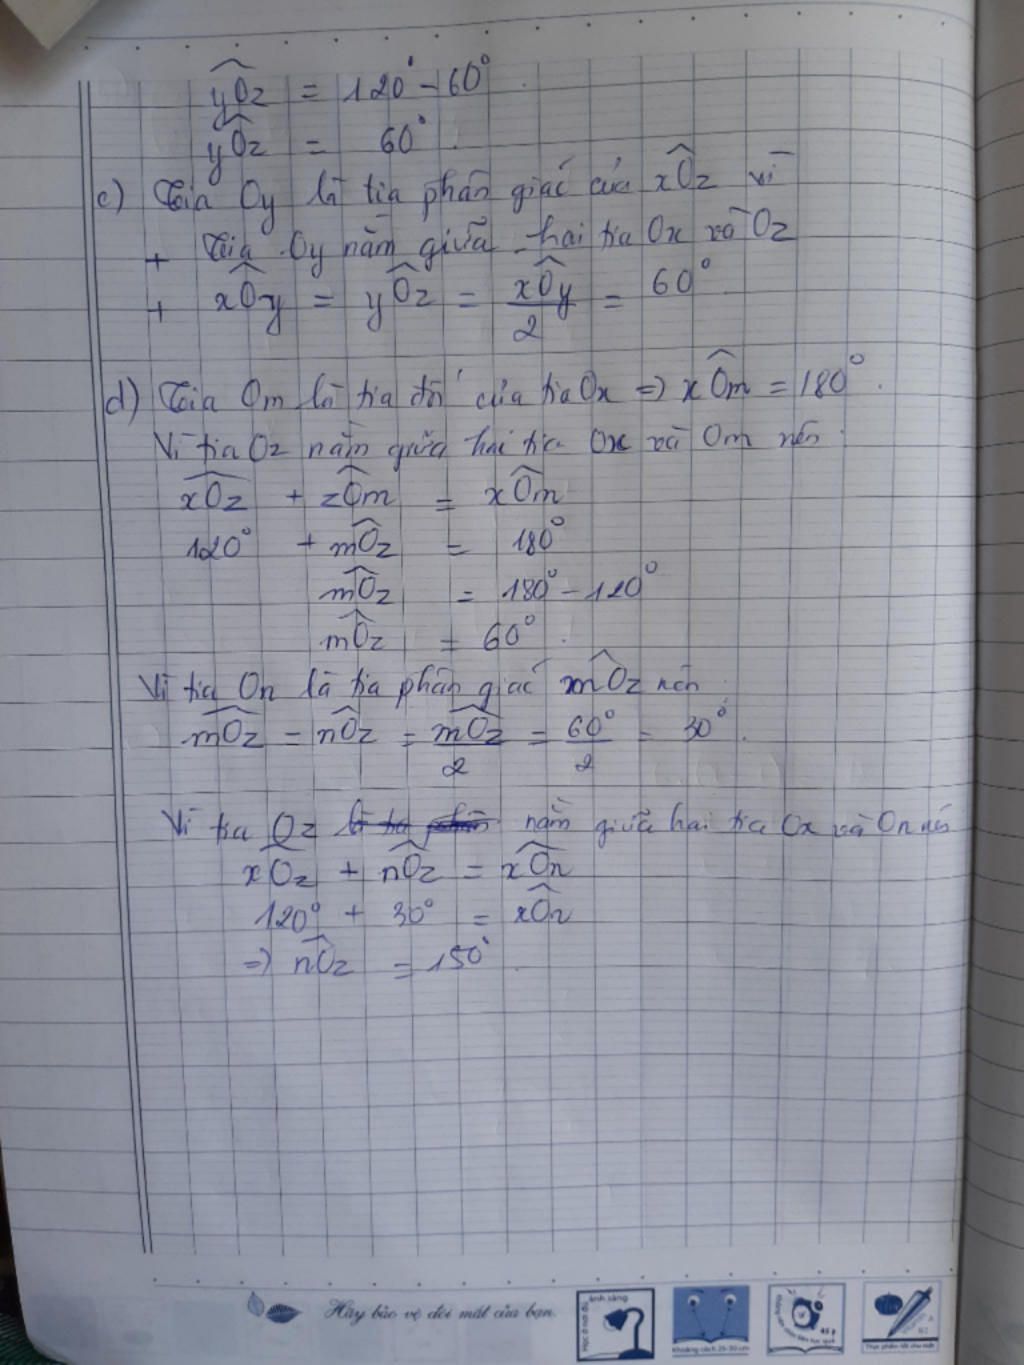 yOz = 120° - 60°
yOz = 60°.
c) Tia Oy là tia phân giác của xOz vì
+ Tia Oy nằm giữa hai tia Ox và Oz
+ xOy = yOz = xOy/2 = 60°
d) Tia Om là tia đối của tia Ox => xOm = 180°.
Vì tia Oz nằm giữa hai tia Ox và Om nên
xOz + zOm = xOm
120° + mOz = 180°
mOz = 180° - 120°
mOz = 60°.
Vì tia On là tia phân giác mOz nên
mOz = nOz = mOz/2 = 60°/2 = 30°.
Vì tia Oz nằm giữa hai tia Ox và On nên
xOz + nOz = xOn
120° + 30° = xOn
=> nOz = 150°
Hãy bảo vệ đôi mắt của bạn.
Học ở nơi đủ ánh sáng
Khoảng cách 25-30 cm
45 p
Thực phẩm tốt cho mắt